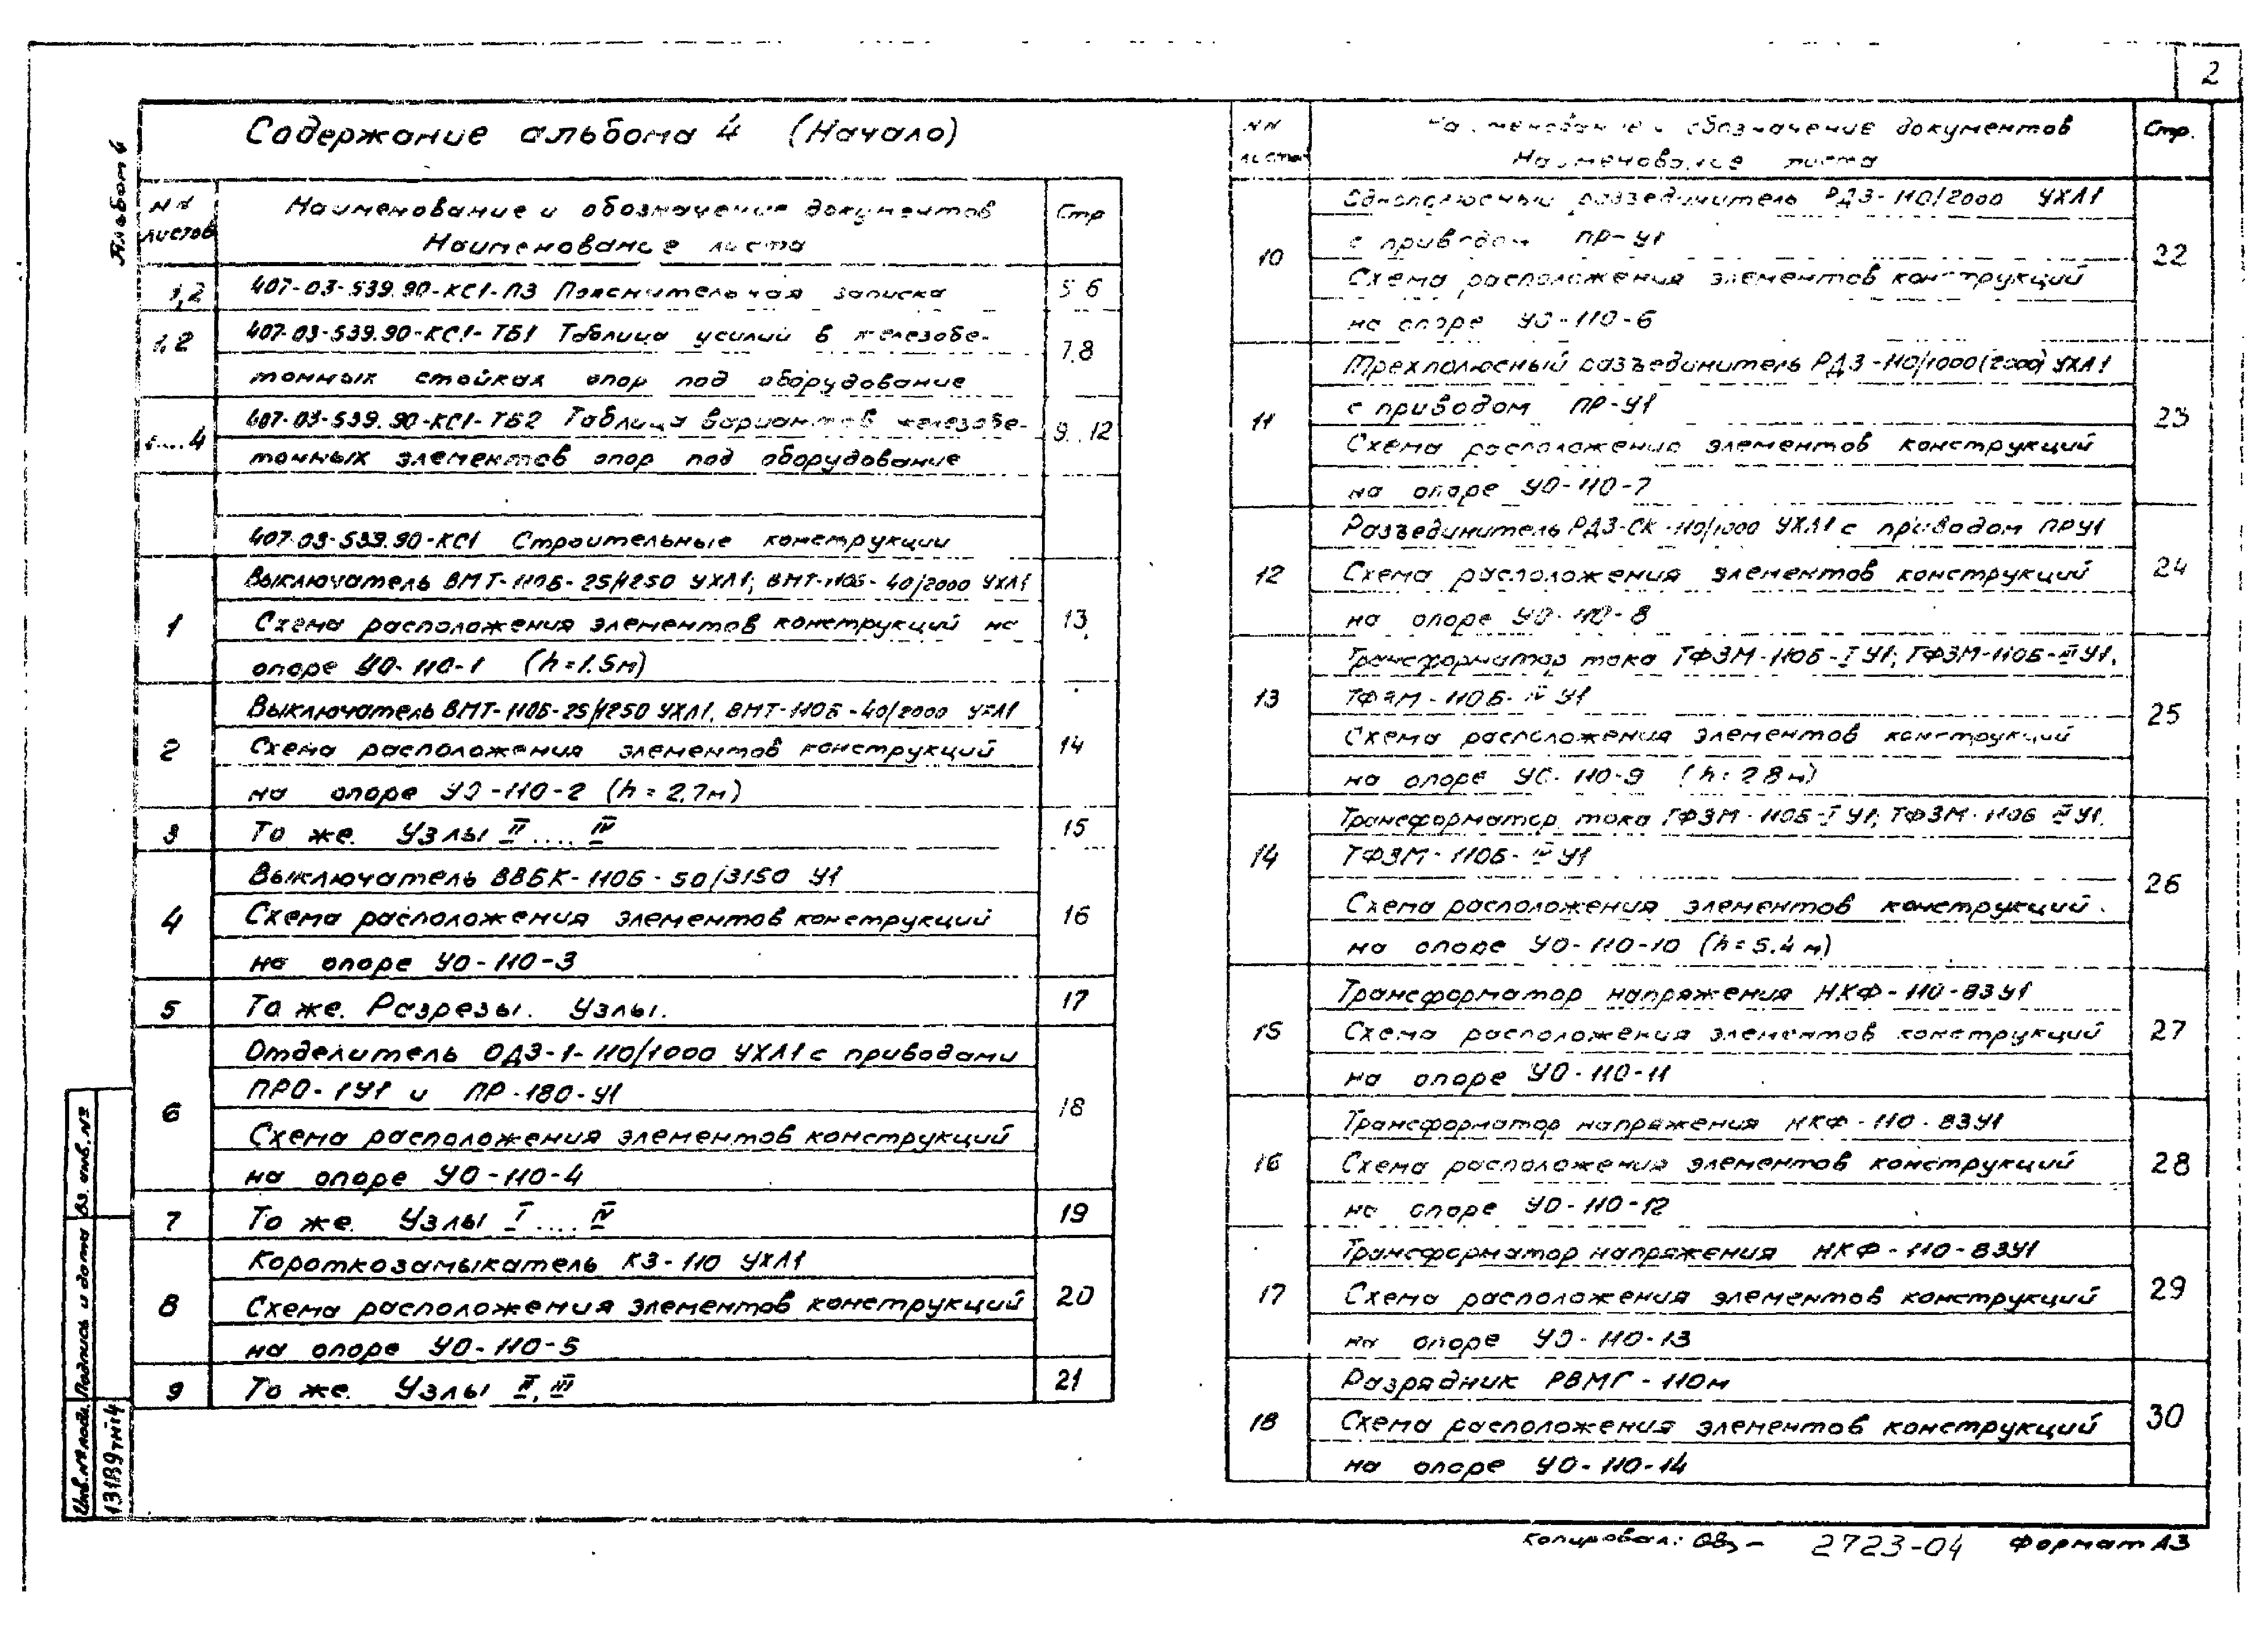 2
Альбом 4
Содержание альбома 4 (Начало)
NN листов
Наименование и обозначение документов
Наименование листа
Стр
1,2
407-03-539.90-КС1-ПЗ Пояснительная записка
5 6
1,2
407-03-539.90-КС1-ТБ1 Таблица усилий в железобе-
тонных стойках опор под оборудование
7,8
1....4
407-03-539.90-КС1-ТБ2 Таблица вариантов железобе-
тонных элементов опор под оборудование
9..12
407-03-539.90-КС1 Строительные конструкции
Выключатель ВМТ-110Б-25/1250 УХЛ1; ВМТ-110Б-40/2000 УХЛ1
1
Схема расположения элементов конструкций на
13
опоре УО-110-1 (h=1.5м)
Выключатель ВМТ-110Б-25/1250 УХЛ1. ВМТ-110Б-40/2000 УХЛ1
2
Схема расположения элементов конструкций
14
на опоре УО-110-2 (h=2,7м)
3
То же. Узлы II....IV
15
Выключатель ВВБК-110Б-50/3150 У1
4
Схема расположения элементов конструкций
16
на опоре УО-110-3
5
То же. Разрезы. Узлы.
17
Отделитель ОДЗ-1-110/1000 УХЛ1 с приводами
ПРО-1У1 и ПР-180-У1
6
18
Схема расположения элементов конструкций
на опоре УО-110-4
7
То же. Узлы I....IV
19
Короткозамыкатель КЗ-110 УХЛ1
8
Схема расположения элементов конструкций
20
на опоре УО-110-5
9
То же. Узлы II, III
21
NN листов
Наименование и обозначение документов
Наименование листа
Стр.
Однополюсный разъединитель РДЗ-110/2000 УХЛ1
с приводом ПР-У1
10
22
Схема расположения элементов конструкций
на опоре УО-110-6
Трехполюсный разъединитель РДЗ-110/1000(2000) УХЛ1
с приводом ПР-У1
11
23
Схема расположения элементов конструкций
на опоре УО-110-7
Разъединитель РДЗ-СК-110/1000 УХЛ1 с приводом ПРУ1
12
Схема расположения элементов конструкций
24
на опоре УО-110-8
Трансформатор тока ТФЗМ-110Б-I У1; ТФЗМ-110Б-III У1,
13
ТФЗМ-110Б-IV У1
25
Схема расположения элементов конструкций
на опоре УО-110-9 (h=2 8м)
Трансформатор тока ТФЗМ-110Б-I У1; ТФЗМ-110Б III У1,
14
ТФЗМ-110Б-IV У1
26
Схема расположения элементов конструкций.
на опоре УО-110-10 (h=5.4м)
Трансформатор напряжения НКФ-110-83У1
15
Схема расположения элементов конструкций
27
на опоре УО-110-11
Трансформатор напряжения НКФ-110-83У1
16
Схема расположения элементов конструкций
28
на опоре УО-110-12
Трансформатор напряжения НКФ-110-83У1
17
Схема расположения элементов конструкций
29
на опоре УО-110-13
Разрядник РВМГ-110м
18
Схема расположения элементов конструкций
30
на опоре УО-110-14
Вз. инв. №
Подпись и дата
Инв. № подл.
13189тм-т4
Копировал:
2723-04
Формат А3